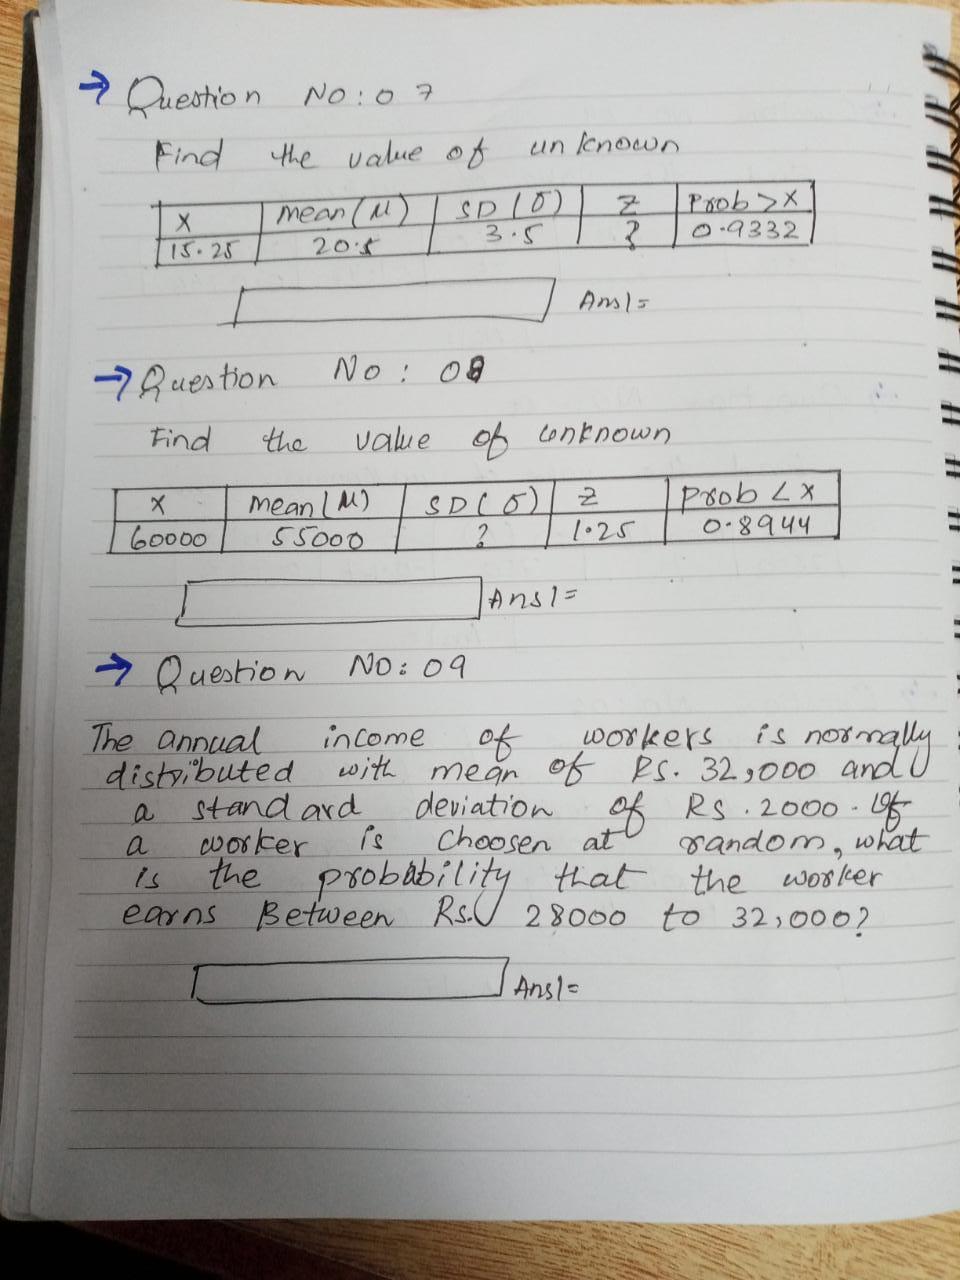 → Question No: 07
Find the value of unknown
X mean(μ) SD(σ) Z Prob > X
15.25 20.5 3.5 ? 0.9332
Ans1=
→ Question No: 08
Find the value of unknown
X mean(μ) SD(σ) Z Prob < X
60000 55000 ? 1.25 0.8944
Ans1=
→ Question No: 09
The annual income of workers is normally
distributed with mean of Rs. 32,000 and
a standard deviation of Rs. 2000. If
a worker is choosen at random, what
is the probability that the worker
earns Between Rs. 28000 to 32,000?
Ans1=